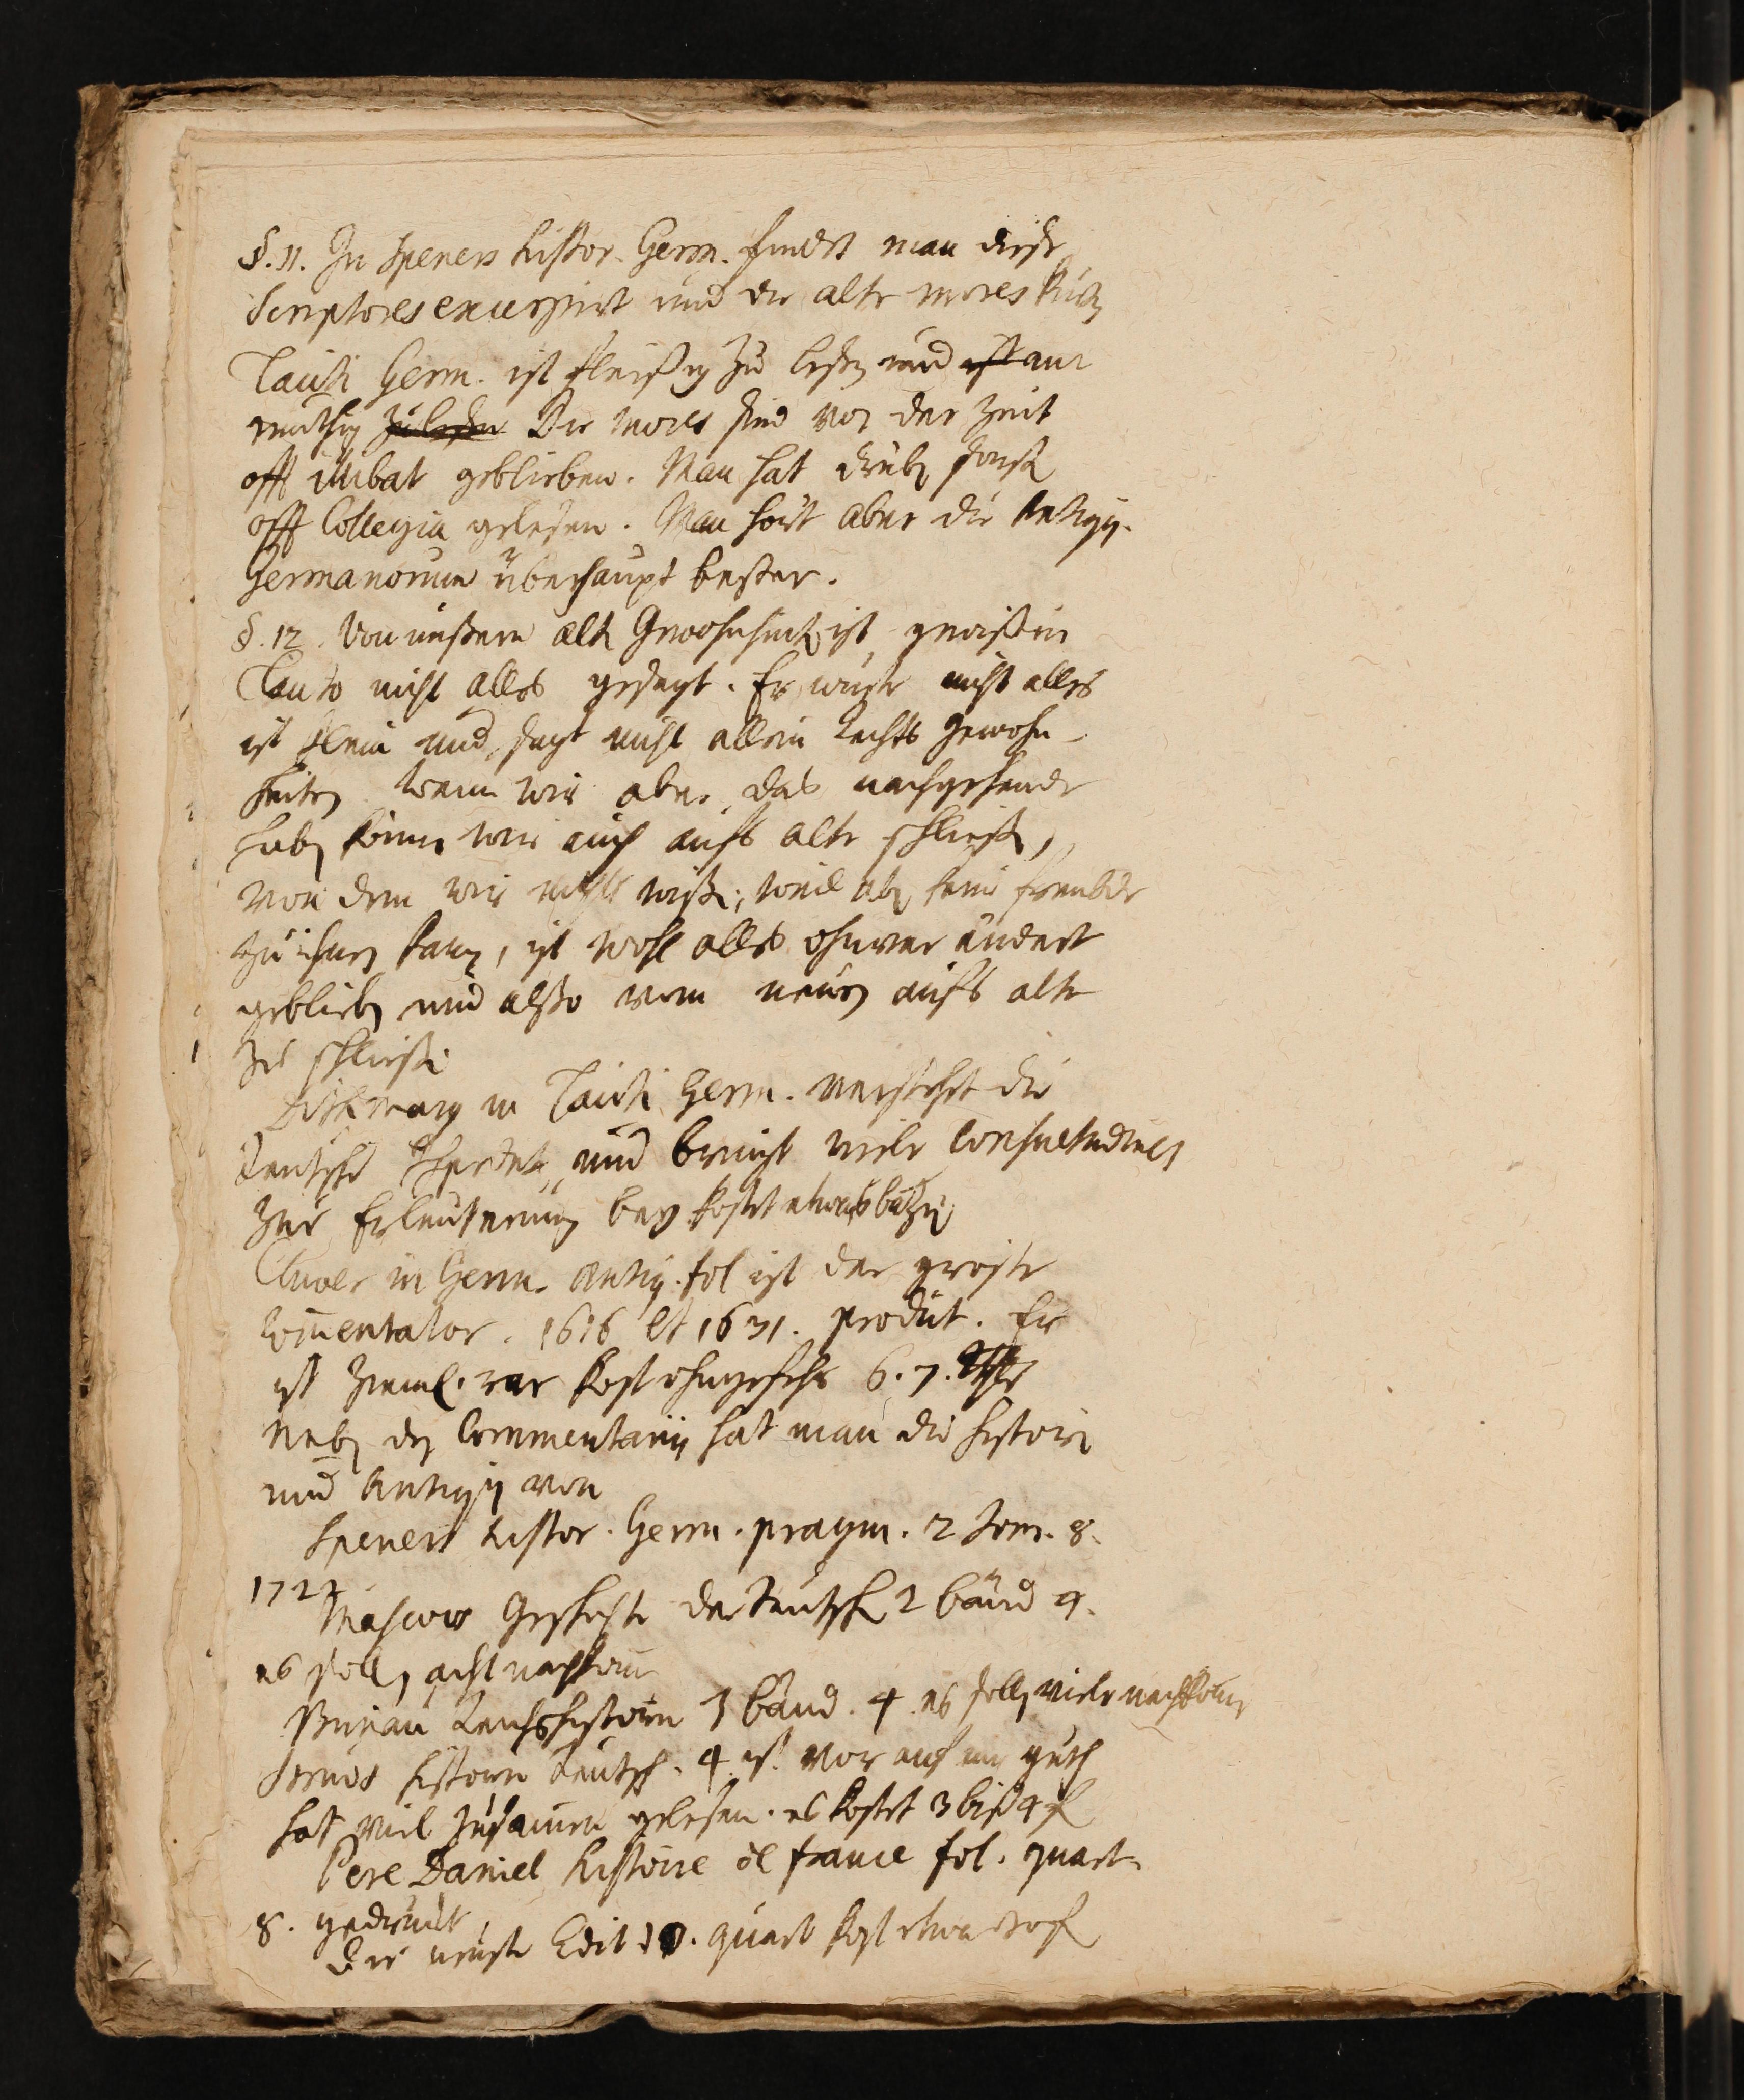 §. 11. In Speners Histor. Germ. findet man diese
Scriptores excerpirt und die alte mores
Taciti Germ. ist fleißig zu lesen und ist anr
muthig zu lesen Die mores sind vor der Zeit
offt illibat geblieben. Man hat drüb sonst
offt Collegia gelesen. Man hört aber die Antiqq.
Germanorum überhaupt besser.
§. 12. Von unßern alt Gewohnheit ist gewiß in
Tacito nicht alles gesagt. Er wuste nicht alles
ist klein und sagt nicht allein Rechts Gewohn-
heiten wenn wir aber das nachgehende
haben können wir auch aufs alte schließen,
von dem wir nichts wißen; weil aber keine frembde
zu ihnen kam, ist wohl alles ohnver ändert
geblieben und alßo vom neuen aufs alte
zu schließen
Dithmars in Taciti Germ. versteht die
Teutsche und bringt viele Consuetudines
zur Erleuterung bey kostet etwas batzen
Cluver in Germ. Antiq. fol ist der groste
Commentator. 1616 et 1631. prodiit. Er
ist ziemlich rar kost ohngefehr 6. 7. Thlr
Neben den Commentariis hat man die historie
und Antiqq von
Speners Histor. Germ. pragm. 2 Tom. 8.
1727
Mascovs Geschichte der Teutschen 2 Bänd 4.
es sollen acht nachkommen
Bunau Reichshistorie 3 bänd. 4. es sollen viele nachkommen
Struvs historie Teutsch. 4. ist vor anf
hat viel zusammen gelesen. es kostet 3 biß 4 f
Pere Daniel Histoire de france fol. quart.
8. gedruckt
Die neuste Edit 10. quart kost etwa